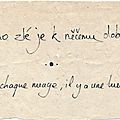 no zlé je k něčemu dob
chaque nuage, il y a une lue